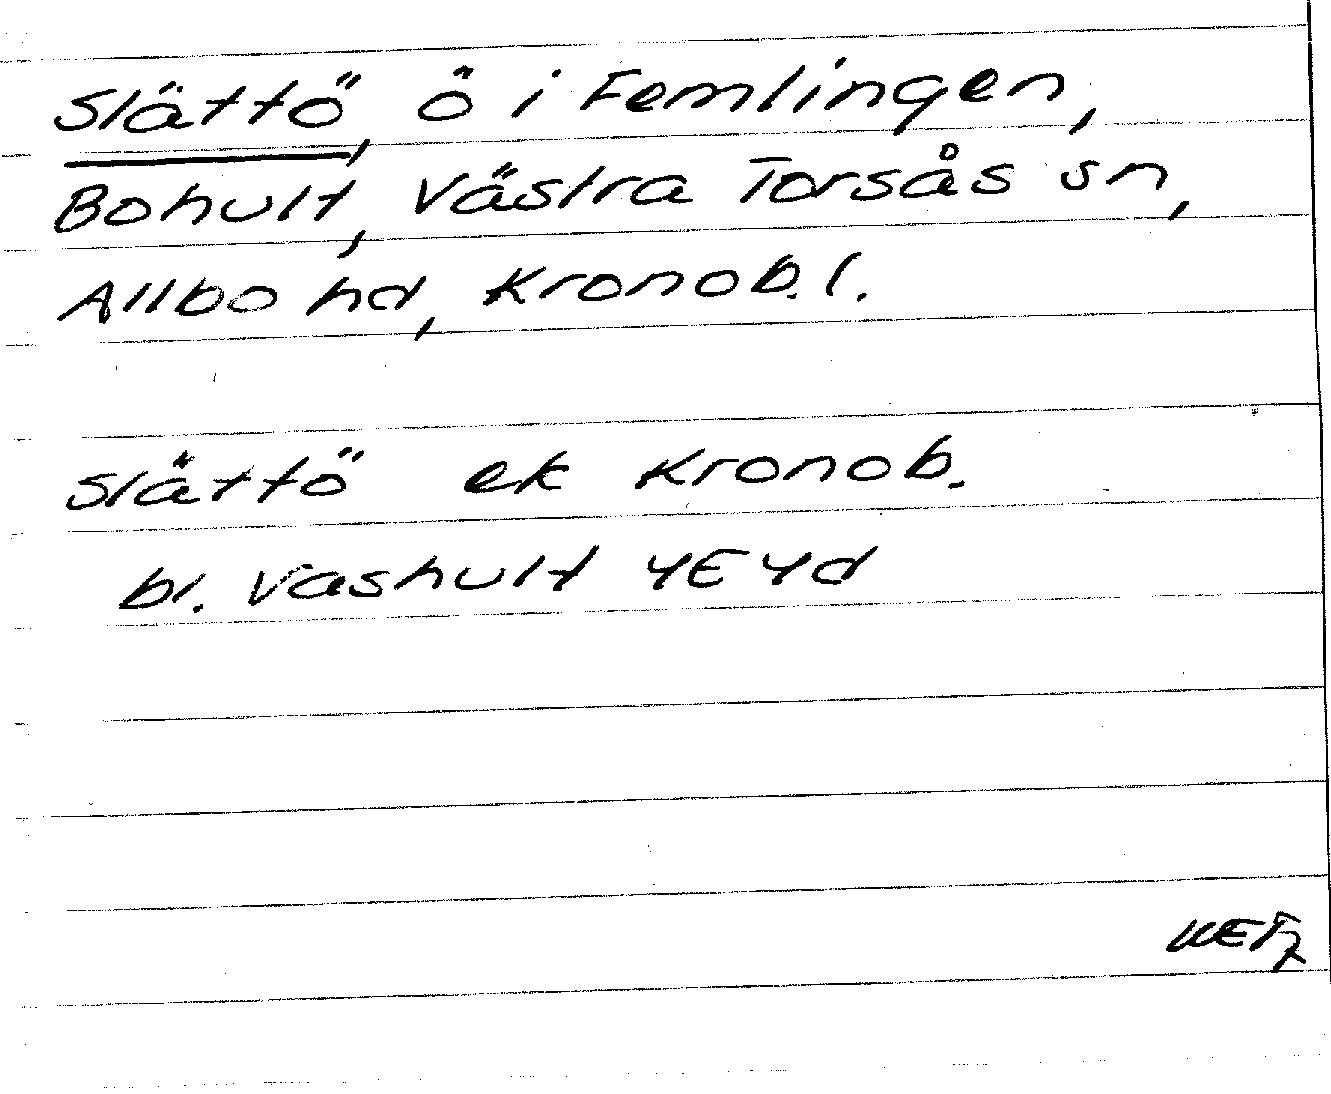 Slättö, ö i Femlingen,
Bohult, Västra Torsås sn,
Allbo hd, Kronob. l.
Slättö ek Kronob.
bl. Vashult 4E4d